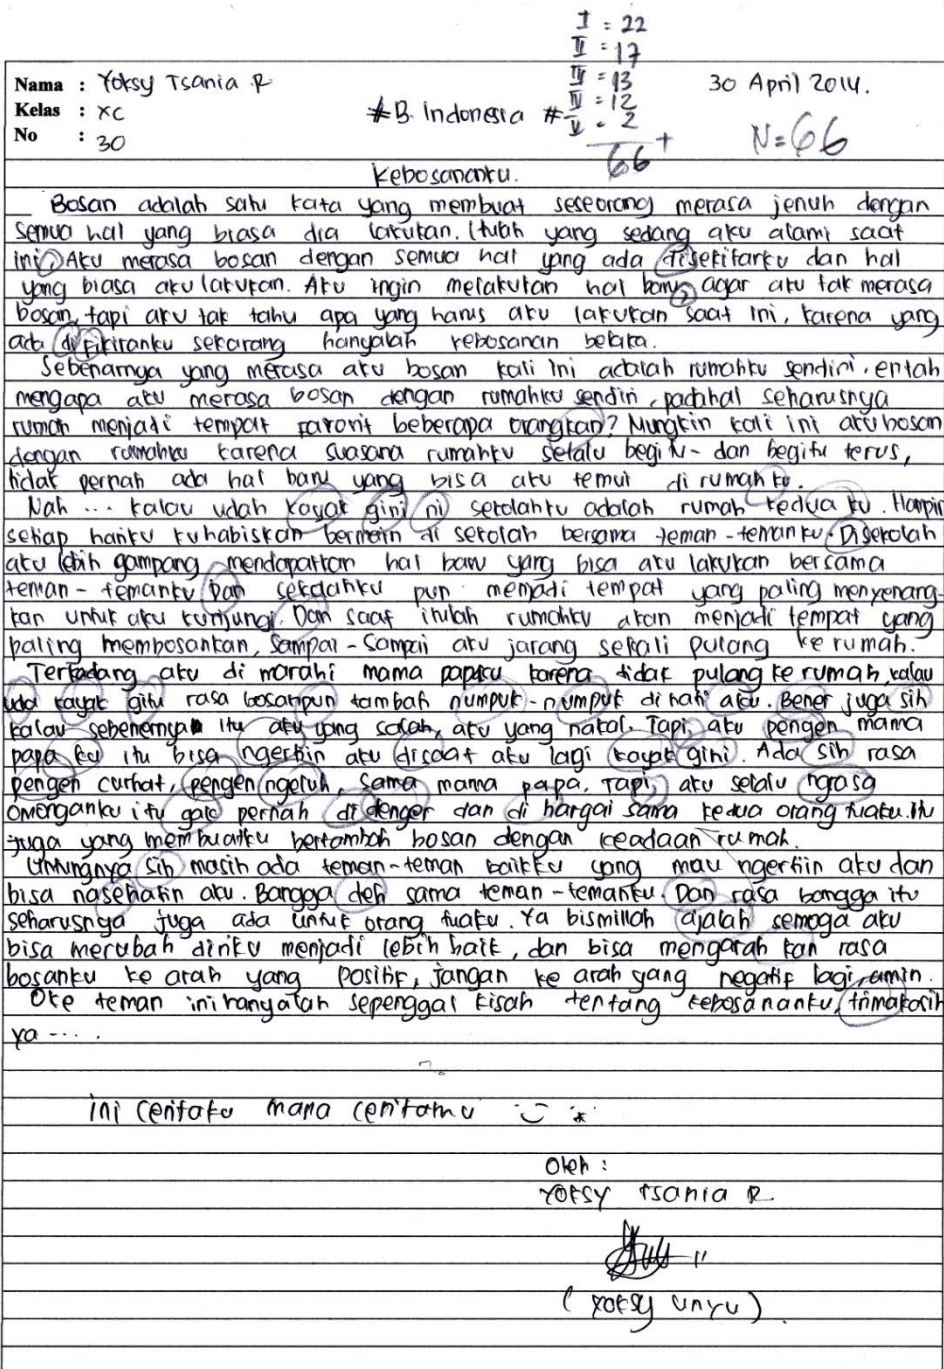 I = 22
II = 17
III = 13
IV = 12
V = 2 +
66
Nama : Yoksy Tsania R
30 April 2014.
Kelas : XC
# B. Indonesia #
No : 30
N = 66
Kebosananku.
Bosan adalah satu kata yang membuat seseorang merasa jenuh dengan
semua hal yang biasa dia lakukan. Itulah yang sedang aku alami saat
ini, Aku merasa bosan dengan semua hal yang ada disekitarku dan hal
yang biasa aku lakukan. Aku ingin melakukan hal baru, agar aku tak merasa
bosan, tapi aku tak tahu apa yang harus aku lakukan saat ini, karena yang
ada difikiranku sekarang hanyalah kebosanan belaka.
Sebenarnya yang merasa aku bosan kali ini adalah rumahku sendiri, entah
mengapa aku merasa bosan dengan rumahku sendiri, padahal seharusnya
rumah menjadi tempat favorit beberapa orangkan? Mungkin kali ini aku bosan
dengan rumahku karena suasana rumahku selalu begitu - dan begitu terus,
tidak pernah ada hal baru yang bisa aku temui di rumah ku.
Nah ... kalau udah kayak gini ni sekolahku adalah rumah kedua ku. Hampir
setiap hariku kuhabiskan bermain di sekolah bersama teman-temanku. Disekolah
aku lebih gampang mendapatkan hal baru yang bisa aku lakukan bersama
teman-temanku Dan sekolahku pun menjadi tempat yang paling menyenang-
kan untuk aku kunjungi. Dan saat itulah rumahku akan menjadi tempat yang
paling membosankan, sampai-sampai aku jarang sekali pulang ke rumah.
Terkadang aku di marahi mama papaku karena tidak pulang ke rumah, kalau
uda kayak gitu rasa bosanpun tambah numpuk-numpuk di hati aku. Bener juga sih
kalau sebenernya itu aku yang salah, aku yang nakal. Tapi, aku pengen mama
papa ku itu bisa ngertiin aku disaat aku lagi kayak gini. Ada sih rasa
pengen curhat, pengen ngeluh, sama mama papa. Tapi, aku selalu ngrasa
omonganku itu gak pernah di denger dan di hargai sama kedua orang tuaku. Itu
juga yang membuatku bertambah bosan dengan keadaan rumah.
Untungnya sih masih ada teman-teman baikku yang mau ngertiin aku dan
bisa nasehatin aku. Bangga deh sama teman-temanku. Dan rasa bangga itu
seharusnya juga ada untuk orang tuaku. Ya bismillah ajalah semoga aku
bisa merubah diriku menjadi lebih baik, dan bisa mengarah kan rasa
bosanku ke arah yang positif, jangan ke arah yang negatif lagi, amin.
Oke teman ini hanyalah sepenggal kisah tentang kebosananku, trimakasih
ya ....
ini ceritaku mana ceritamu
Oleh :
Yoksy Tsania R
( Yoksy unyu )